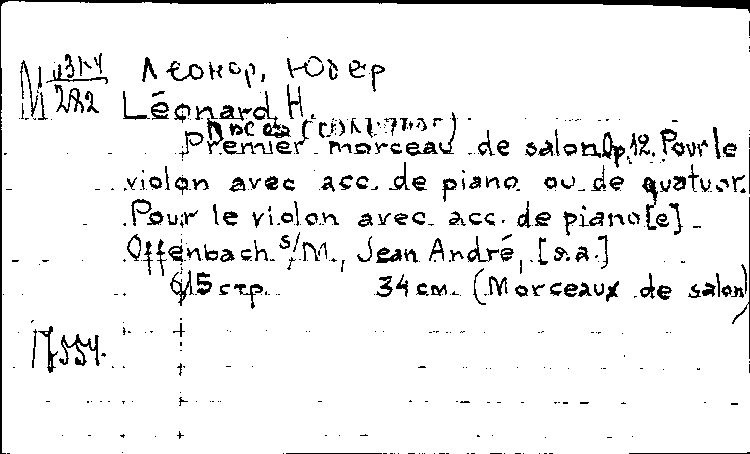 М из14/282 Леонор, Юбер
Léonard, H.
Premier morceau de salon Op. 12. Pour le
violon avec acc. de piano ou de quatuor.
Pour le violon avec acc. de piano[e]
Offenbach s/M., Jean André, [s.a.]
15 стр. 34 см. (Morceaux de salon)
17554.